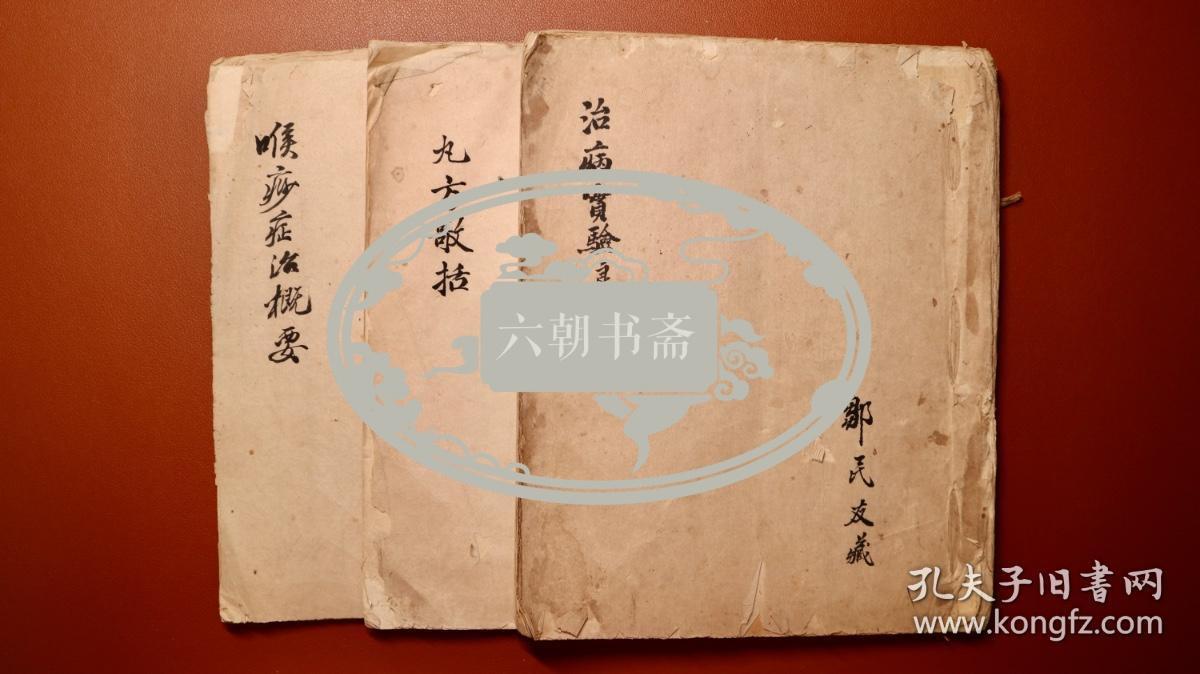 治病實驗
鄒民友藏
丸方歌括
喉痧症治概要
六朝书斋
孔夫子旧書网
www.kongfz.com